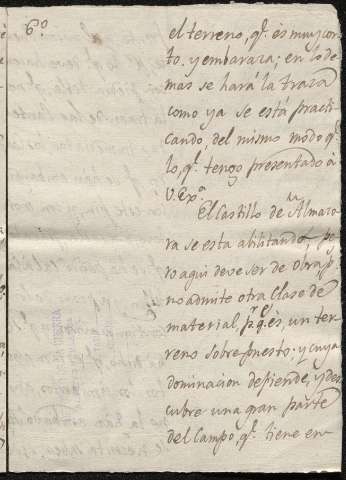 6.º
el terreno, q.^e es muy cor
to, y embaraza; en lo de
mas se hará la traza
como ya se está practi
cando, del mismo modo q.^e
lo, q.^e tengo presentado à
V. Ex.ª
El Castillo de la Almaza
ra se esta abilitando, pe
ro aqui deve ser de obra, p.^r
no admite otra Clase de
material, p.^r q.^e es, un ter
reno sobre puesto; y cuya
dominacion defiende, y des
cubre una gran parte
del Campo, q.^e tiene en